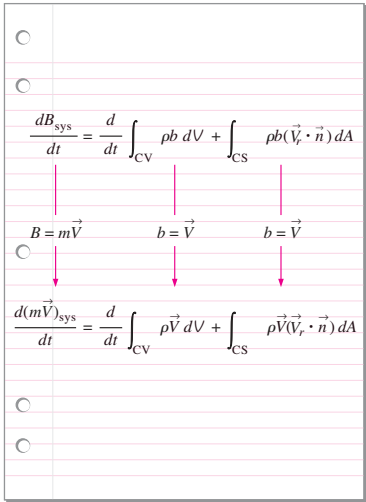 dB_sys/dt = d/dt ∫_CV ρb dV + ∫_CS ρb(V⃗_r · n⃗) dA
B = mV⃗ b = V⃗ b = V⃗
d(mV⃗)_sys/dt = d/dt ∫_CV ρV⃗ dV + ∫_CS ρV⃗(V⃗_r · n⃗) dA